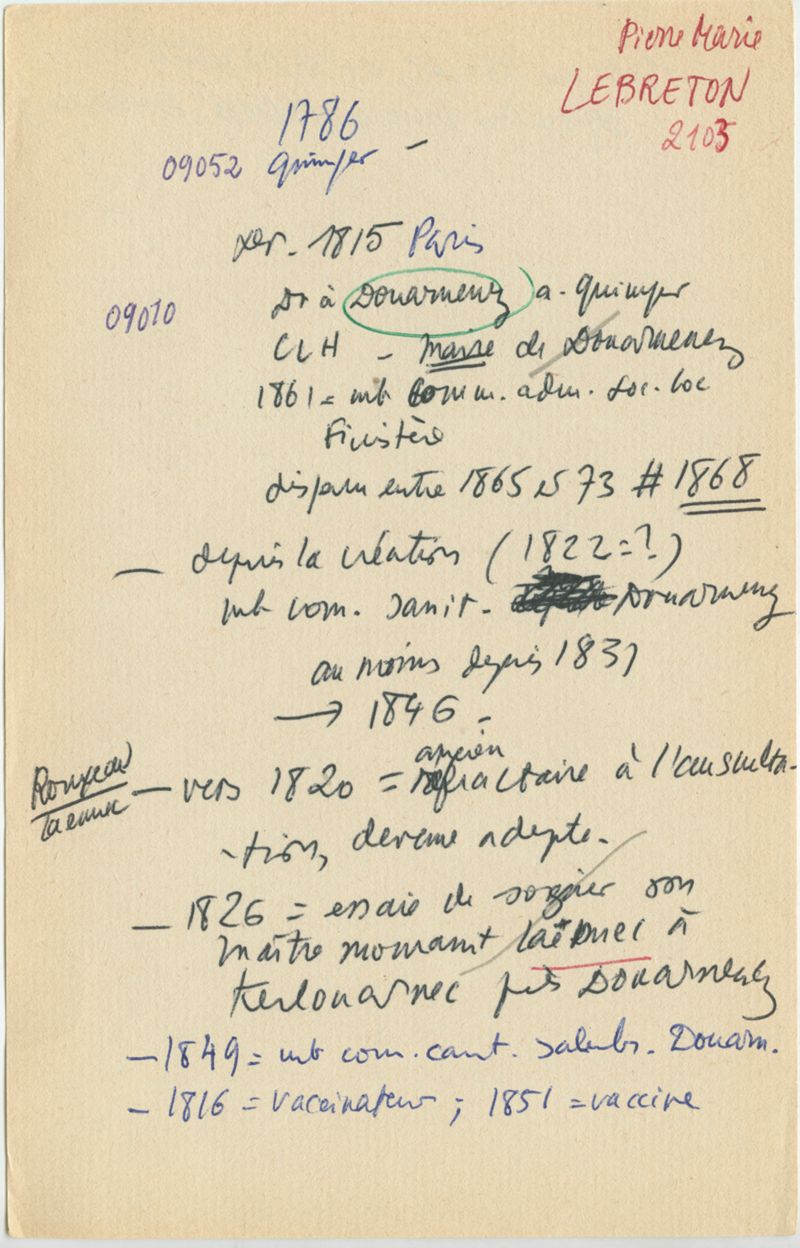 Pierre Marie
LEBRETON
2103
1786
09052 Quimper -
1815 Paris
09010
Dr à Douarnenez a. Quimper
CLH - maire de Douarnenez
1861 = mb Comm. adm. soc. loc
Finistère
disparu entre 1865 et 73 # 1868
- depuis la création (1822 = ?)
mb com. sanit. Douarnenez
au moins depuis 1831
→ 1846 -
Rouxeau
Laennec
ancien
- vers 1820 = réfractaire à l'ausculta-
-tion, devenu adepte.
- 1826 = essaie de soigner son
maître mourant Laënnec à
Kerlouarnec près Douarnenez
- 1849 = mb com. cant. salubr. Douarn.
- 1816 = vaccinateur ; 1851 = vaccine